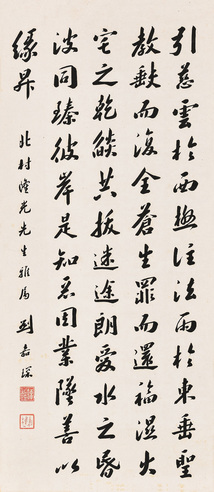 引慈雲於西極注法雨於東垂聖
教缺而復全蒼生罪而還福濕火
宅之乾燄共拔迷途朗愛水之昏
波同臻彼岸是知惡因業墜善以
緣昇
北村光先生雅属 劉嘉琛